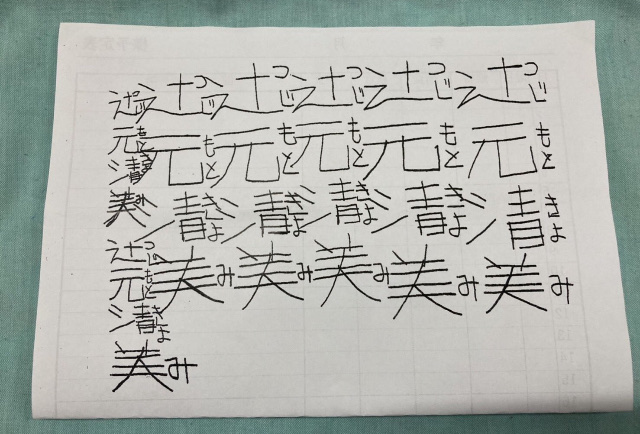 辻元清美
つじもときよみ
辻元清美
つじもときよみ
辻元清美
つじもときよみ
辻元清美
つじもときよみ
辻元清美
つじもときよみ
辻元清美
つじもときよみ
辻元清美
つじもときよみ